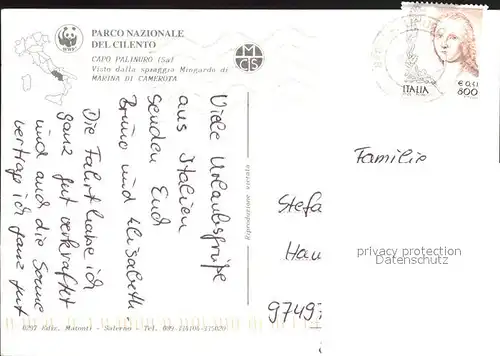 PARCO NAZIONALE
DEL CILENTO
CAPO PALINURO (Sa)
Visto dalla spiaggia Mingardo di
MARINA DI CAMEROTA
WWF
MCS
Viele Urlaubsgrüße
aus Italien
senden Euch
Bruno und Elisabeth
Die Fahrt habe ich
ganz gut verkraftet
und auch die Sonne
vertrag ich ganz gut
Riproduzione vietata
0297 Ediz. Matonti - Salerno - Tel. 089-
ITALIA
€ 0,41
800
Familie
Stefa
Hau
9749
privacy protection
Datenschutz